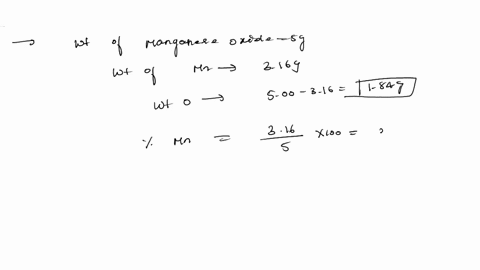 → wt of Manganese oxide - 5g
wt of Mn → 3.16g
wt O → 5.00 - 3.16 = 1.84g
% Mn = 3.16/5 × 100 =